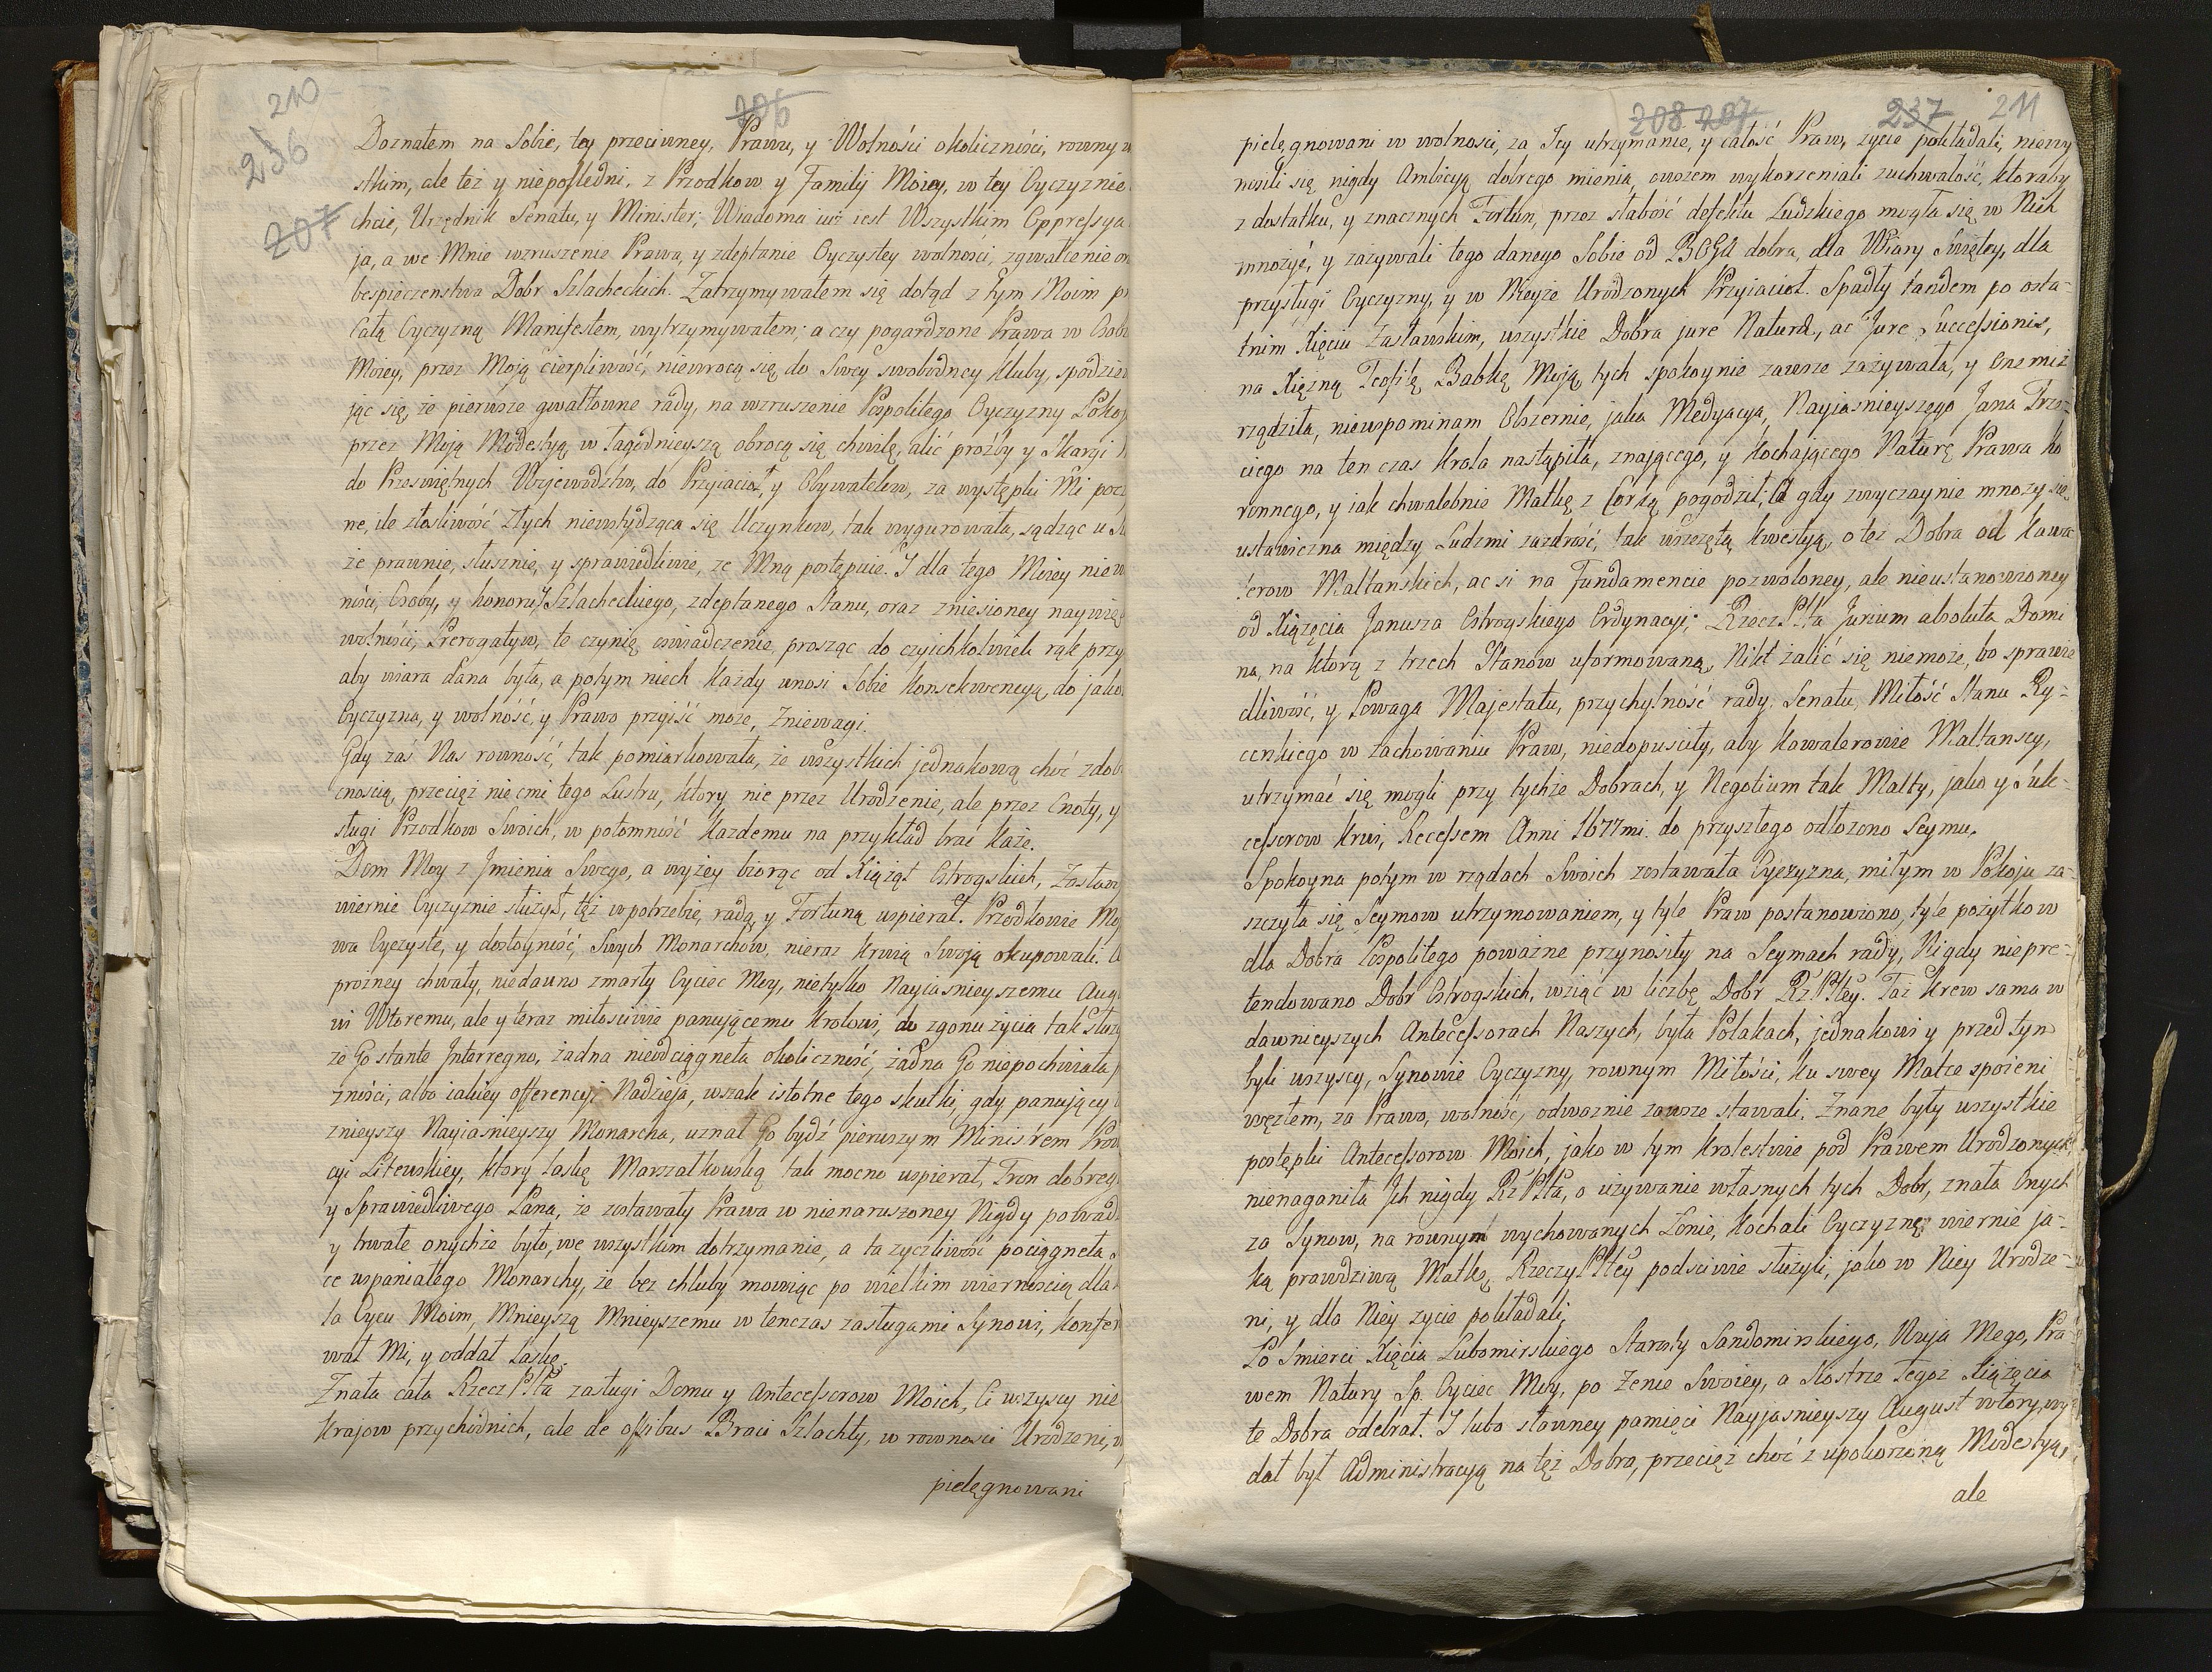 210
236
207
206
Doznałem na Sobie, tey przeciwney, Prawu, y Wolności okoliczności, rowny w
stkim, ale też y niepośledni, z Przodkow y Familij Moiey, w tey Oyczyznie
chcic, Urzędnik Senatu, y Minister; Wiadoma iuż iest Wszystkim Oppressya
ja, a we Mnie wzruszenie Prawa, y zdeptanie Oyczystey wolności, zgwałcenie
bespieczenstwa Dobr Szlacheckich. Zatrzymywałem się dotąd z tym Moim
Całą Oyczyzną Manifestem, wytrzymywałem; a czy pogardzone Prawa w Osob
Moiey, przez Moją cierpliwość, niewrocą się do Swey swobodney kluby, spodziew
jąc się, że pierwsze gwałtowne rady, na wzruszenie Pospolitego Oyczyzny Pokoj
przez Moją Modestyą, w łagodnieyszą obrocą się chwilę, alić proźby y Skargi
do Prześwietnych Wojewodztw, do Przyiacioł, y Obywatelow, za występki Mi pocz
ne, ile złośliwość Złych niewstydząca się Uczynkow, tak wygurowała, sądząc u
że prawnie, słusznie, y sprawiedliwie, ze Mną postępuie. I dla tego Moiey niew
ności, Osoby, y honoru Szlacheckiego, zdeptanego Stanu, oraz zniesioney naywię
wolności, Prerogatyw, te czynię oswiadczenie, prosząc do czyichkolwiek rąk przy
aby wiara dana była, a potym niech Każdy wnosi Sobie Konsekwencyą, do jako
Oyczyzna, y wolność, y Prawo przyiść może, Zniewagi.
Gdy zaś Nas rowność, tak pomiarkowała, że wszystkich jednakową choć zdob
cnością, przecięż niećmi tego Lustru, ktory nie przez Urodzenie, ale przez Cnoty, y
sługi Przodkow Swoich, w potomność Każdemu na przykład brać każe.
Dom Moy z Jmienia Swego, a wyżey biorąc od Xiążąt Ostrogskich, Zasław
wiernie Oyczyznie służył, też w potrzebie, radą, y Fortuną wspierał. Przodkowie Mo
wa Oyczyste, y dostoyność, Swych Monarchow, nieraz krwią Swoją okupowali.
prozney chwały, niedawno zmarły Oyciec Moy, nietylko Nayiasnieyszemu Aug
wi Wtoremu, ale y teraz miłościwie panującemu Krolowi, do zgonu życia tak słuz
że Go stante Interregno, żadna nieodciągneła okoliczność, żadna Go niepochwiała
zności, albo iakiey offerencyi Nadzieja, wszak istotne tego skutki, gdy panujący
znieyszy Nayiasnieyszy Monarcha, uznał Go bydź pierwszym Ministrem Prow
cyi Litewskiey, ktory Laskę Marszałkowską tak mocno wspierał, Tron dobreg
y Sprawiedliwego Pana, że zostawały Prawa w nienaruszoney Nigdy powad
y trwałe onychże było, we wszystkim dotrzymanie, a ta zyczliwość pociągneła
ce wspaniałego Monarchy, że bez chluby mowiąc po wielkim wiernością dla
ta Oycu Moim, Mnieyszą Mnieyszemu w tenczas zasługami Synowi, Konfer
wał Mi, y oddał Laskę.
Znała cała Rzecz Plta zasługi Domu y Antecessorow Moich, Ci wszyscy nie
Krajow przychodnich, ale de ossibus Braci Szlachty, w rowności Urodzeni,
pielęgnowani
208 207
237 211
pielęgnowani w wolności, za Jey utrzymanie, y całość Praw, życie pokładali, niewy
nosili się nigdy Ambicyą dobrego mienia, owszem wykorzeniali zuchwałość, ktoraby
z dostatku, y znacznych Fortun, przez słabość defektu Ludzkiego mogła się w Nich
mnożyć, y zażywali tego danego Sobie od BOGA dobra, dla Wiary Swiętey, dla
przysługi Oyczyzny, y w Nieyże Urodzonych Przyiacioł. Spadły tandem po osta-
tnim Xięciu Zasławskim, wszystkie Dobra jure Naturæ, ac Jure Successionis,
na Xiężną Teofilę Babkę Moją, tych spokoynie zawsze zażywała, y Onemiż
rządziła, niewspominam Obszernie, jaka Medyacya, Nayiasnieyszego Jana Trze-
ciego na ten czas Krola nastąpiła, znającego, y Kochającego Naturę Prawa ko
ronnego, y iak chwalebnie Matkę z Corką pogodził; A gdy zwyczaynie mnoży się
ustawiczna między Ludzmi zazdrość, tak wszczętą kwestyą, o też Dobra od Kawa
lerow Maltanskich, ac si na Fundamencie pozwoloney, ale nieustanowioney
od Xiążęcia Janusza Ostrogskiego Ordynacyi; Rzecz Plta Jurium absoluta Domi
na, na ktorą z trzech Stanow uformowaną, Nikt żalić się niemoże, bo sprawie
dliwość, y Powaga Majestatu, przychylność rady, Senatu, Miłość Stanu Ry-
cerskiego w zachowaniu Praw, niedopusciły, aby Kawalerowie Maltanscy,
utrzymać się mogli przy tychże Dobrach, y Negotium tak Malty, jako y Suk-
cessorow krwi, Recessem Anni 1677mi. do przyszłego odłożono Seymu.
Spokoyna potym w rządach Swoich zostawała Oyczyzna, miłym w Pokoju za-
szczyła się Seymow utrzymowaniem, y tyle Praw postanowiono, tyle pożytkow
dla Dobra Pospolitego poważne przynosiły na Seymach rady, Nigdy niepre-
tendowano Dobr Ostrogskich, wziąć w liczbę Dobr Rz Pltey. Taż Krew sama w
dawnieyszych Antecessorach Naszych, była Polakach, jednakowi y przed tym
byli wszyscy, Synowie Oyczyzny, rownym Miłości, ku swey Matce spoieni
węzłem, za Prawa, wolność, odważnie zawsze stawali. Znane były wszystkie
postępki Antecessorow Moich, jako w tym Krolestwie pod Prawem Urodzonych,
nienaganiła Jch nigdy Rz Plta, o używanie własnych tych Dobr, znała Onych
za Synow, na rownym wychowanych Łonie, Kochali Oyczyznę, wiernie ja-
ką prawdziwą Matkę, Rzeczy Pltey podsciwie służyli, jako w Niey Urodze-
ni, y dla Niey życie pokładali,
Po Smierci Xięcia Lubomirskiego Starosty Sandomirskiego, Wuja Mego, Pra
wem Natury Sp. Oyciec Moy, po Żenie Swoiey, a Siostrze Tegoż Xiążęcia
te Dobra odebrał. I lubo sławney pamięci Nayjasnieyszy August wtory, wy-
dał był Administracyą na też Dobra, przecięż choć z upokorzoną Modestyą,
ale